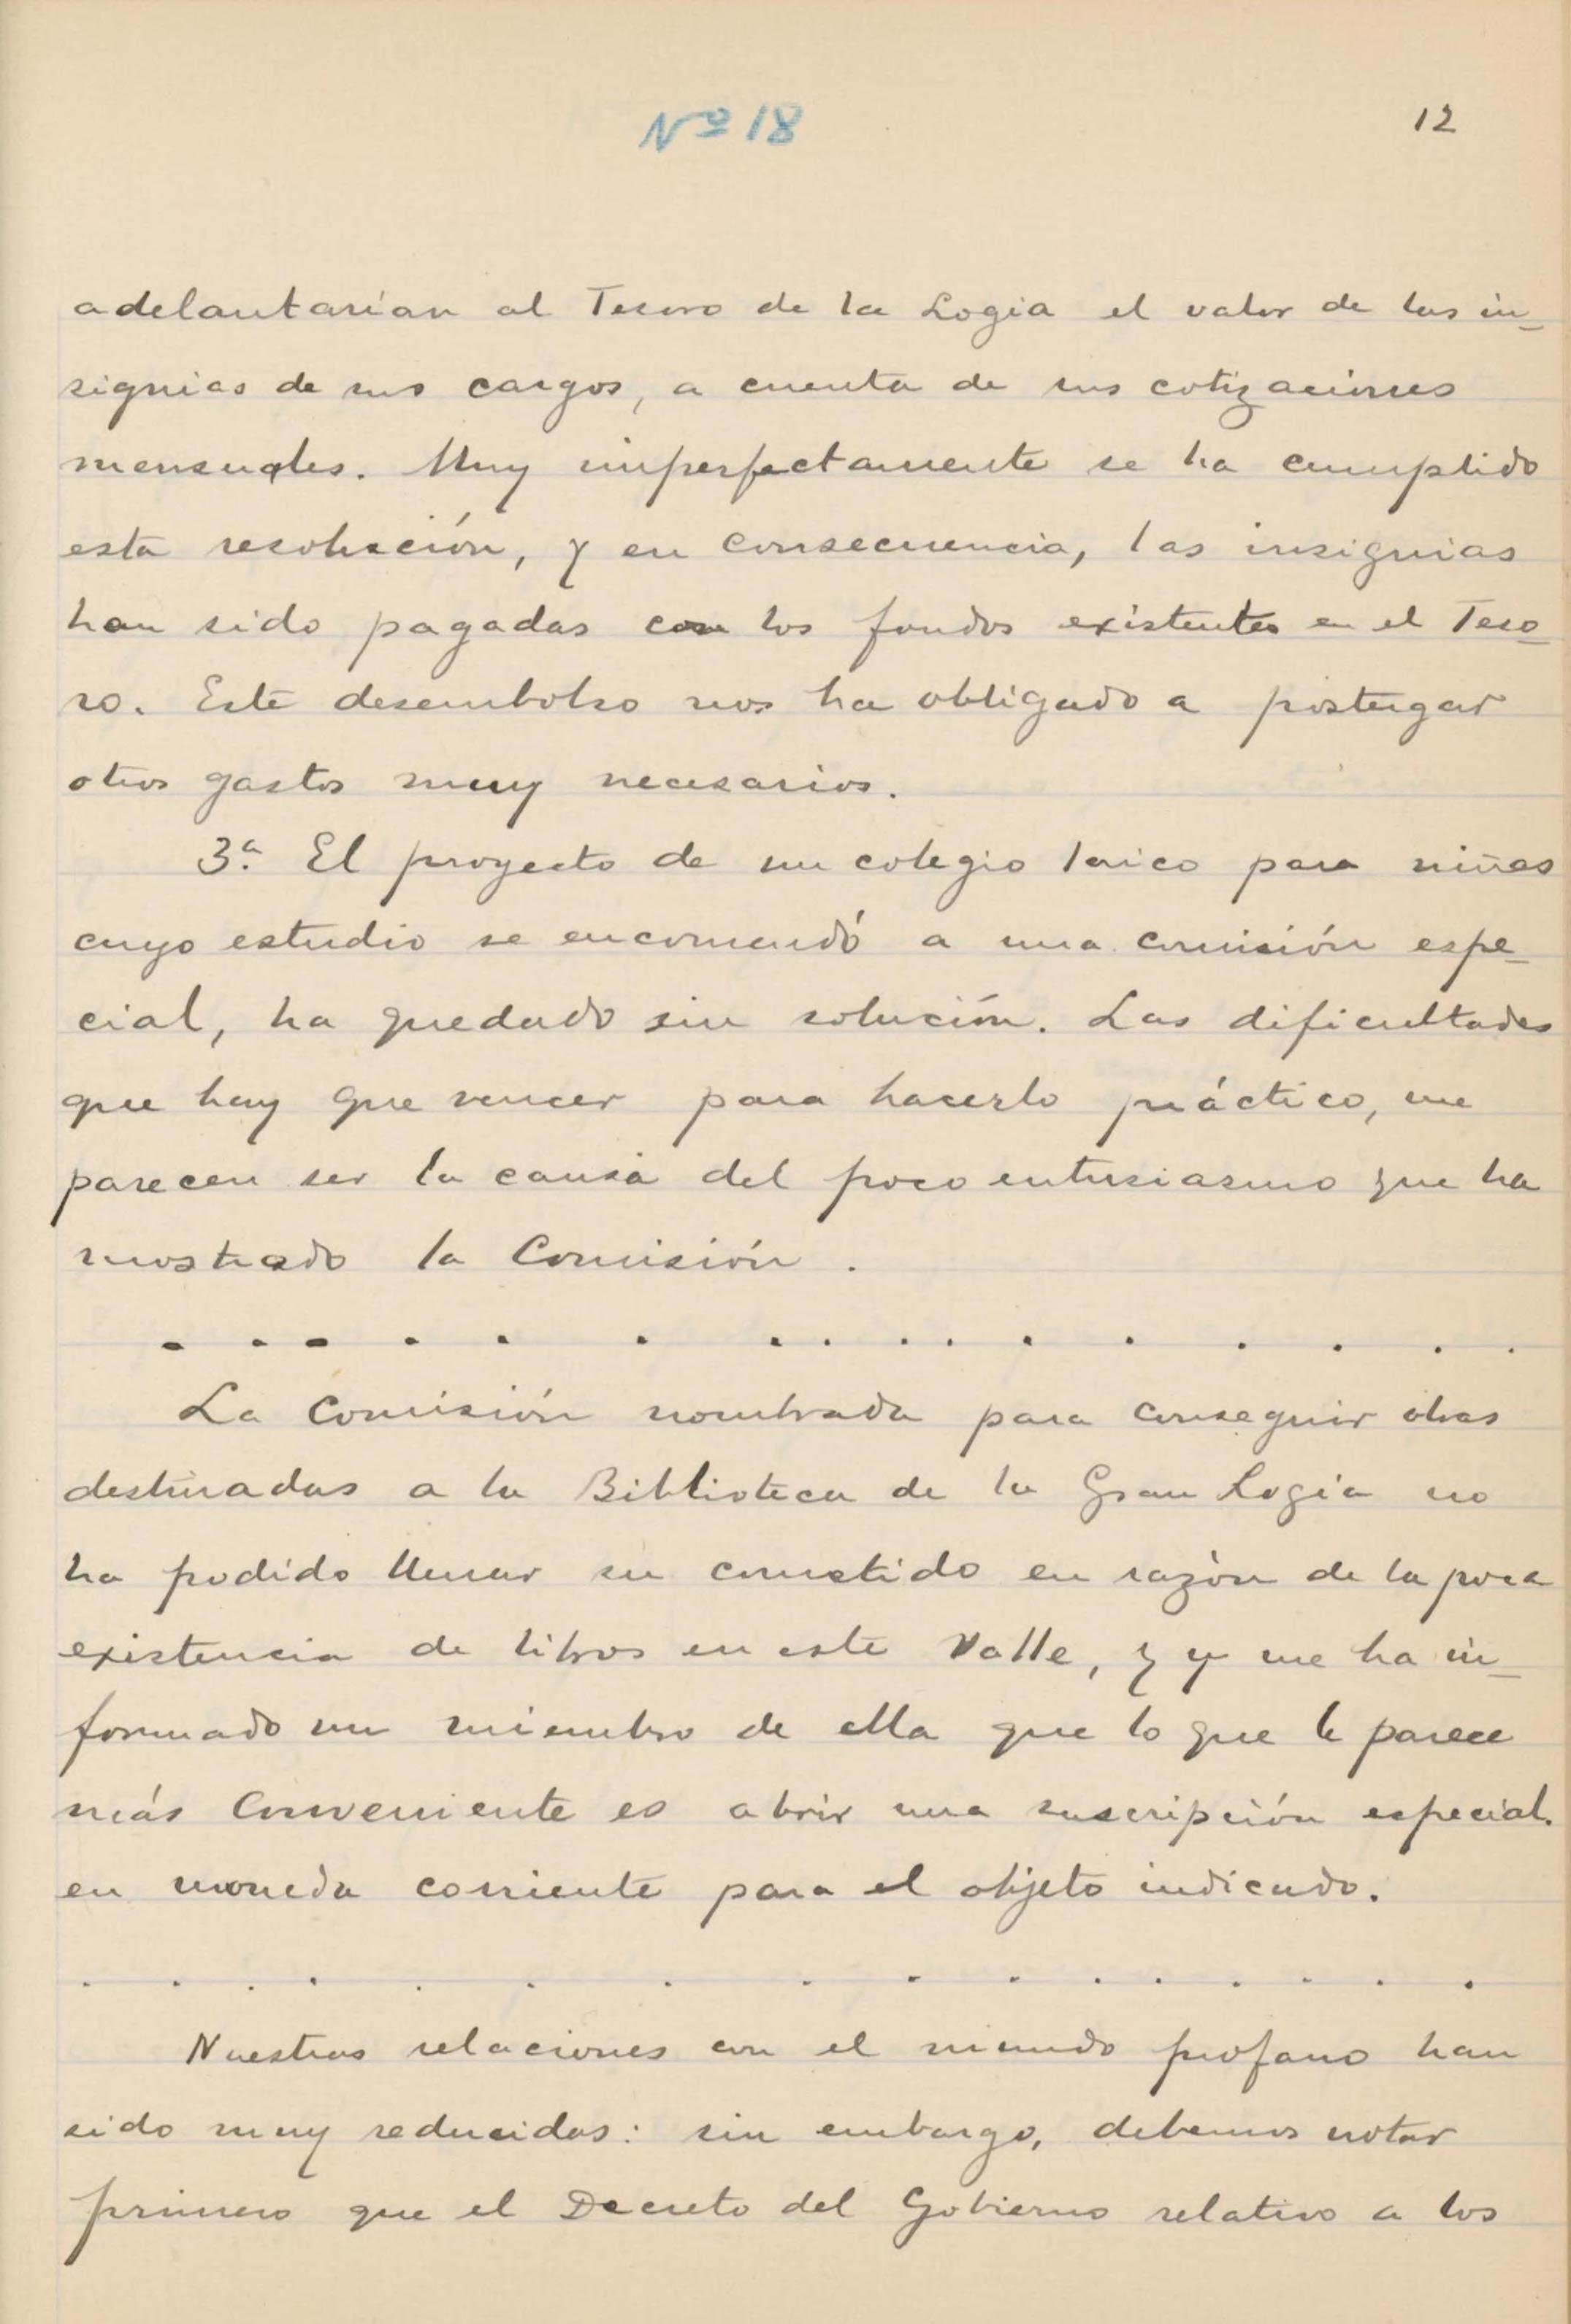 Nº 18
12
adelantarían al Tesoro de la Logia el valor de las in-
signias de sus cargos, a cuenta de sus cotizaciones
mensuales. Muy imperfectamente se ha cumplido
esta resolución, y en consecuencia, las insignias
han sido pagadas con los fondos existentes en el Teso-
ro. Este desembolso nos ha obligado a postergar
otros gastos muy necesarios.
3.ª El proyecto de un colegio laico para niñas
cuyo estudio se encomendó a una comisión espe-
cial, ha quedado sin solución. Las dificultades
que hay que vencer para hacerlo práctico, me
parecen ser la causa del poco entusiasmo que ha
mostrado la Comisión.
. . . . . . . . . . . . . . . .
La Comisión nombrada para conseguir obras
destinadas a la Biblioteca de la Gran Logia no
ha podido llenar su cometido en razón de la poca
existencia de libros en este Valle, y y me ha in-
formado un miembro de ella que lo que le parece
más conveniente es abrir una suscripción especial.
en moneda corriente para el objeto indicado.
. . . . . . . . . . . . . . . . .
Nuestras relaciones con el mundo profano han
sido muy reducidas: sin embargo, debemos notar
primero que el Decreto del Gobierno relativo a los